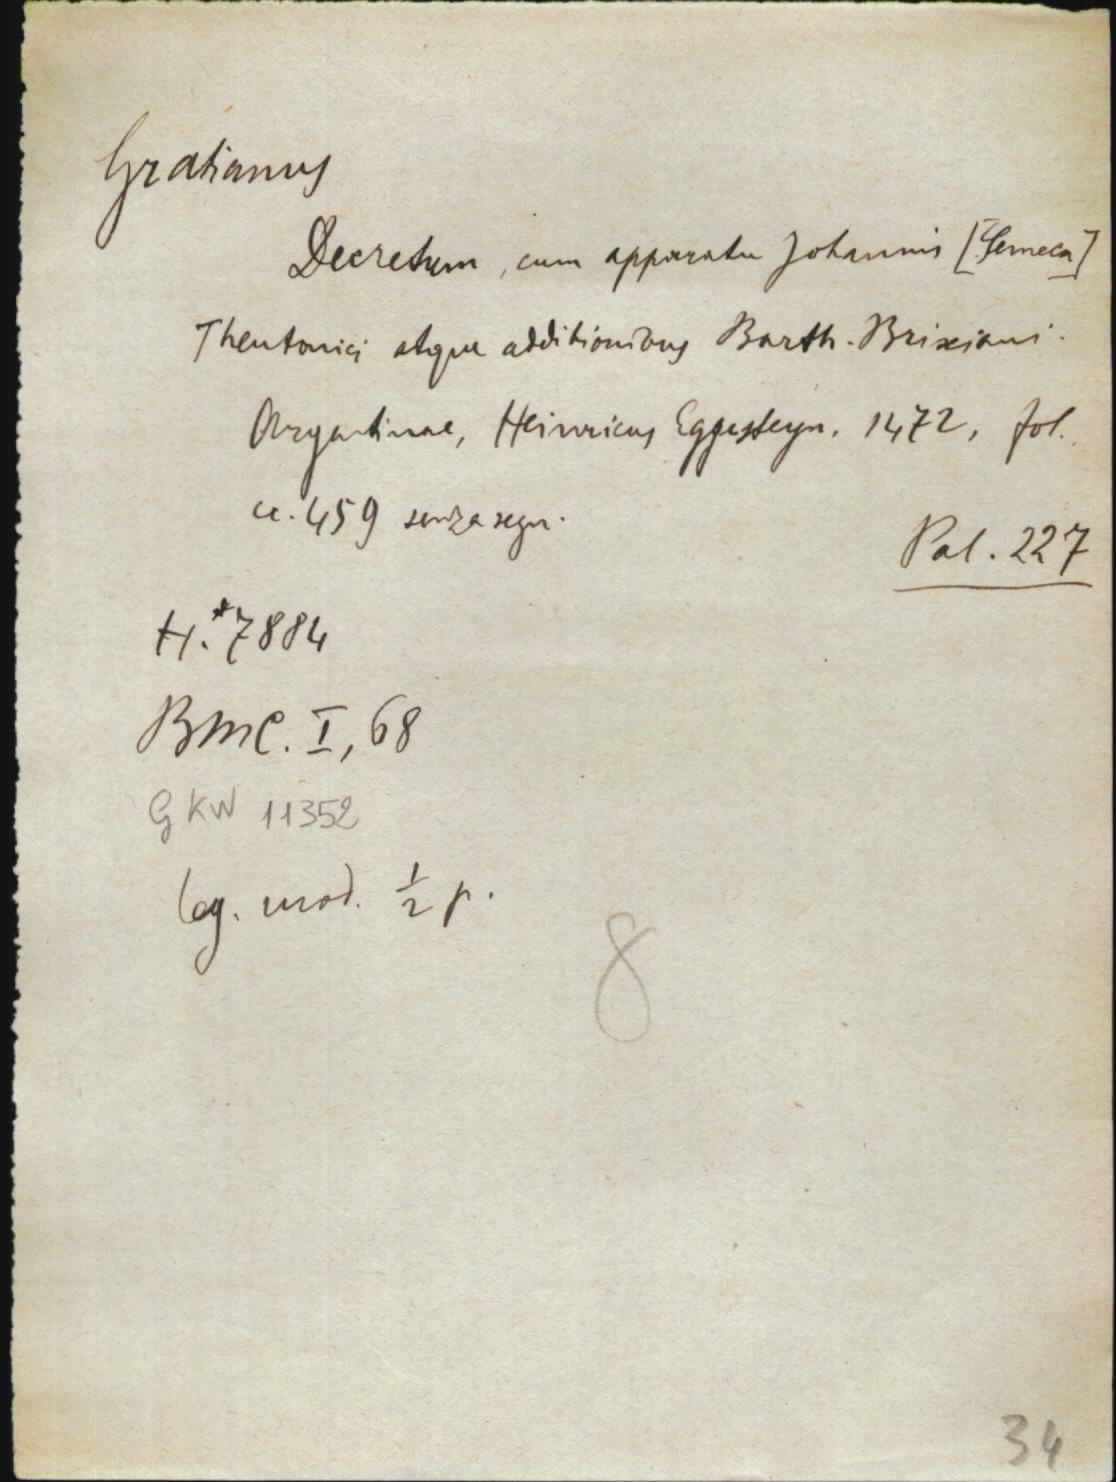 Gratianus
Decretum, cum apparatu Johannis [Semeca]
Theutonici atque additionibus Barth. Brixiani.
Argentinae, Heinricus Eggesteyn. 1472, fol.
cc. 459 senza segn.
Pal. 227
H.*7884
BMC. I, 68
GKW 11352
leg. mod. 1/2 p.
8
34